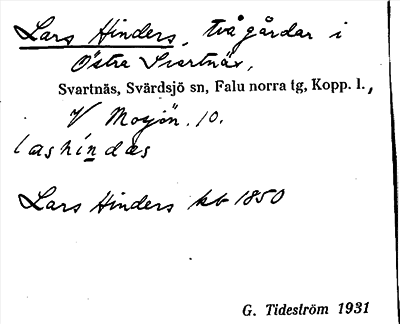 Lars Hinders, två gårdar i
Östra Svartnäs,
Svartnäs, Svärdsjö sn, Falu norra tg, Kopp. l.,
V Mosjön. 10.
lashindas
Lars Hinders kb 1850
G. Tideström 1931